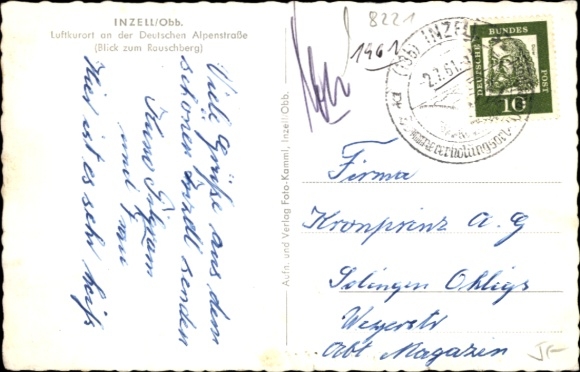 INZELL/Obb.
Luftkurort an der Deutschen Alpenstraße
(Blick zum Rauschberg)
Viele Grüße aus dem
schönen Inzell senden
Kuno
und Frau
Hier ist es sehr heiß
Aufn. und Verlag Foto-Kamml, Inzell/Obb.
8221
1961
INZELL
2.7.61
DEUTSCHE BUNDESPOST
10
Firma
Kronprinz A. G
Solingen Ohligs
Weyerstr
Abt Magazin